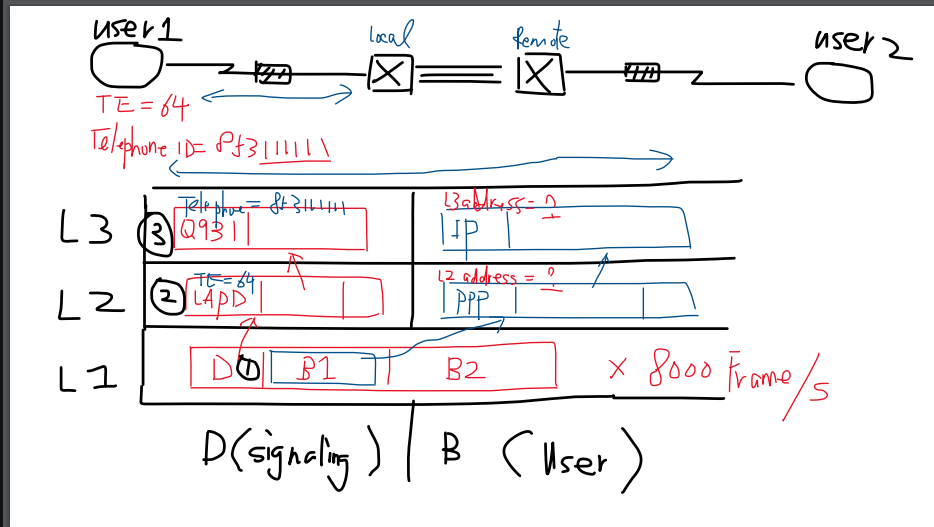 user1
Local
Remote
user2
TE = 64
Telephone ID= 8f3111111
L3
3
Telephone = 8f3111111
Q931
L3 address = ?
IP
L2
2
TE=64
LAPD
L2 address = ?
PPP
L1
D
1
B1
B2
x 8000 Frame/s
D(signaling) | B (User)